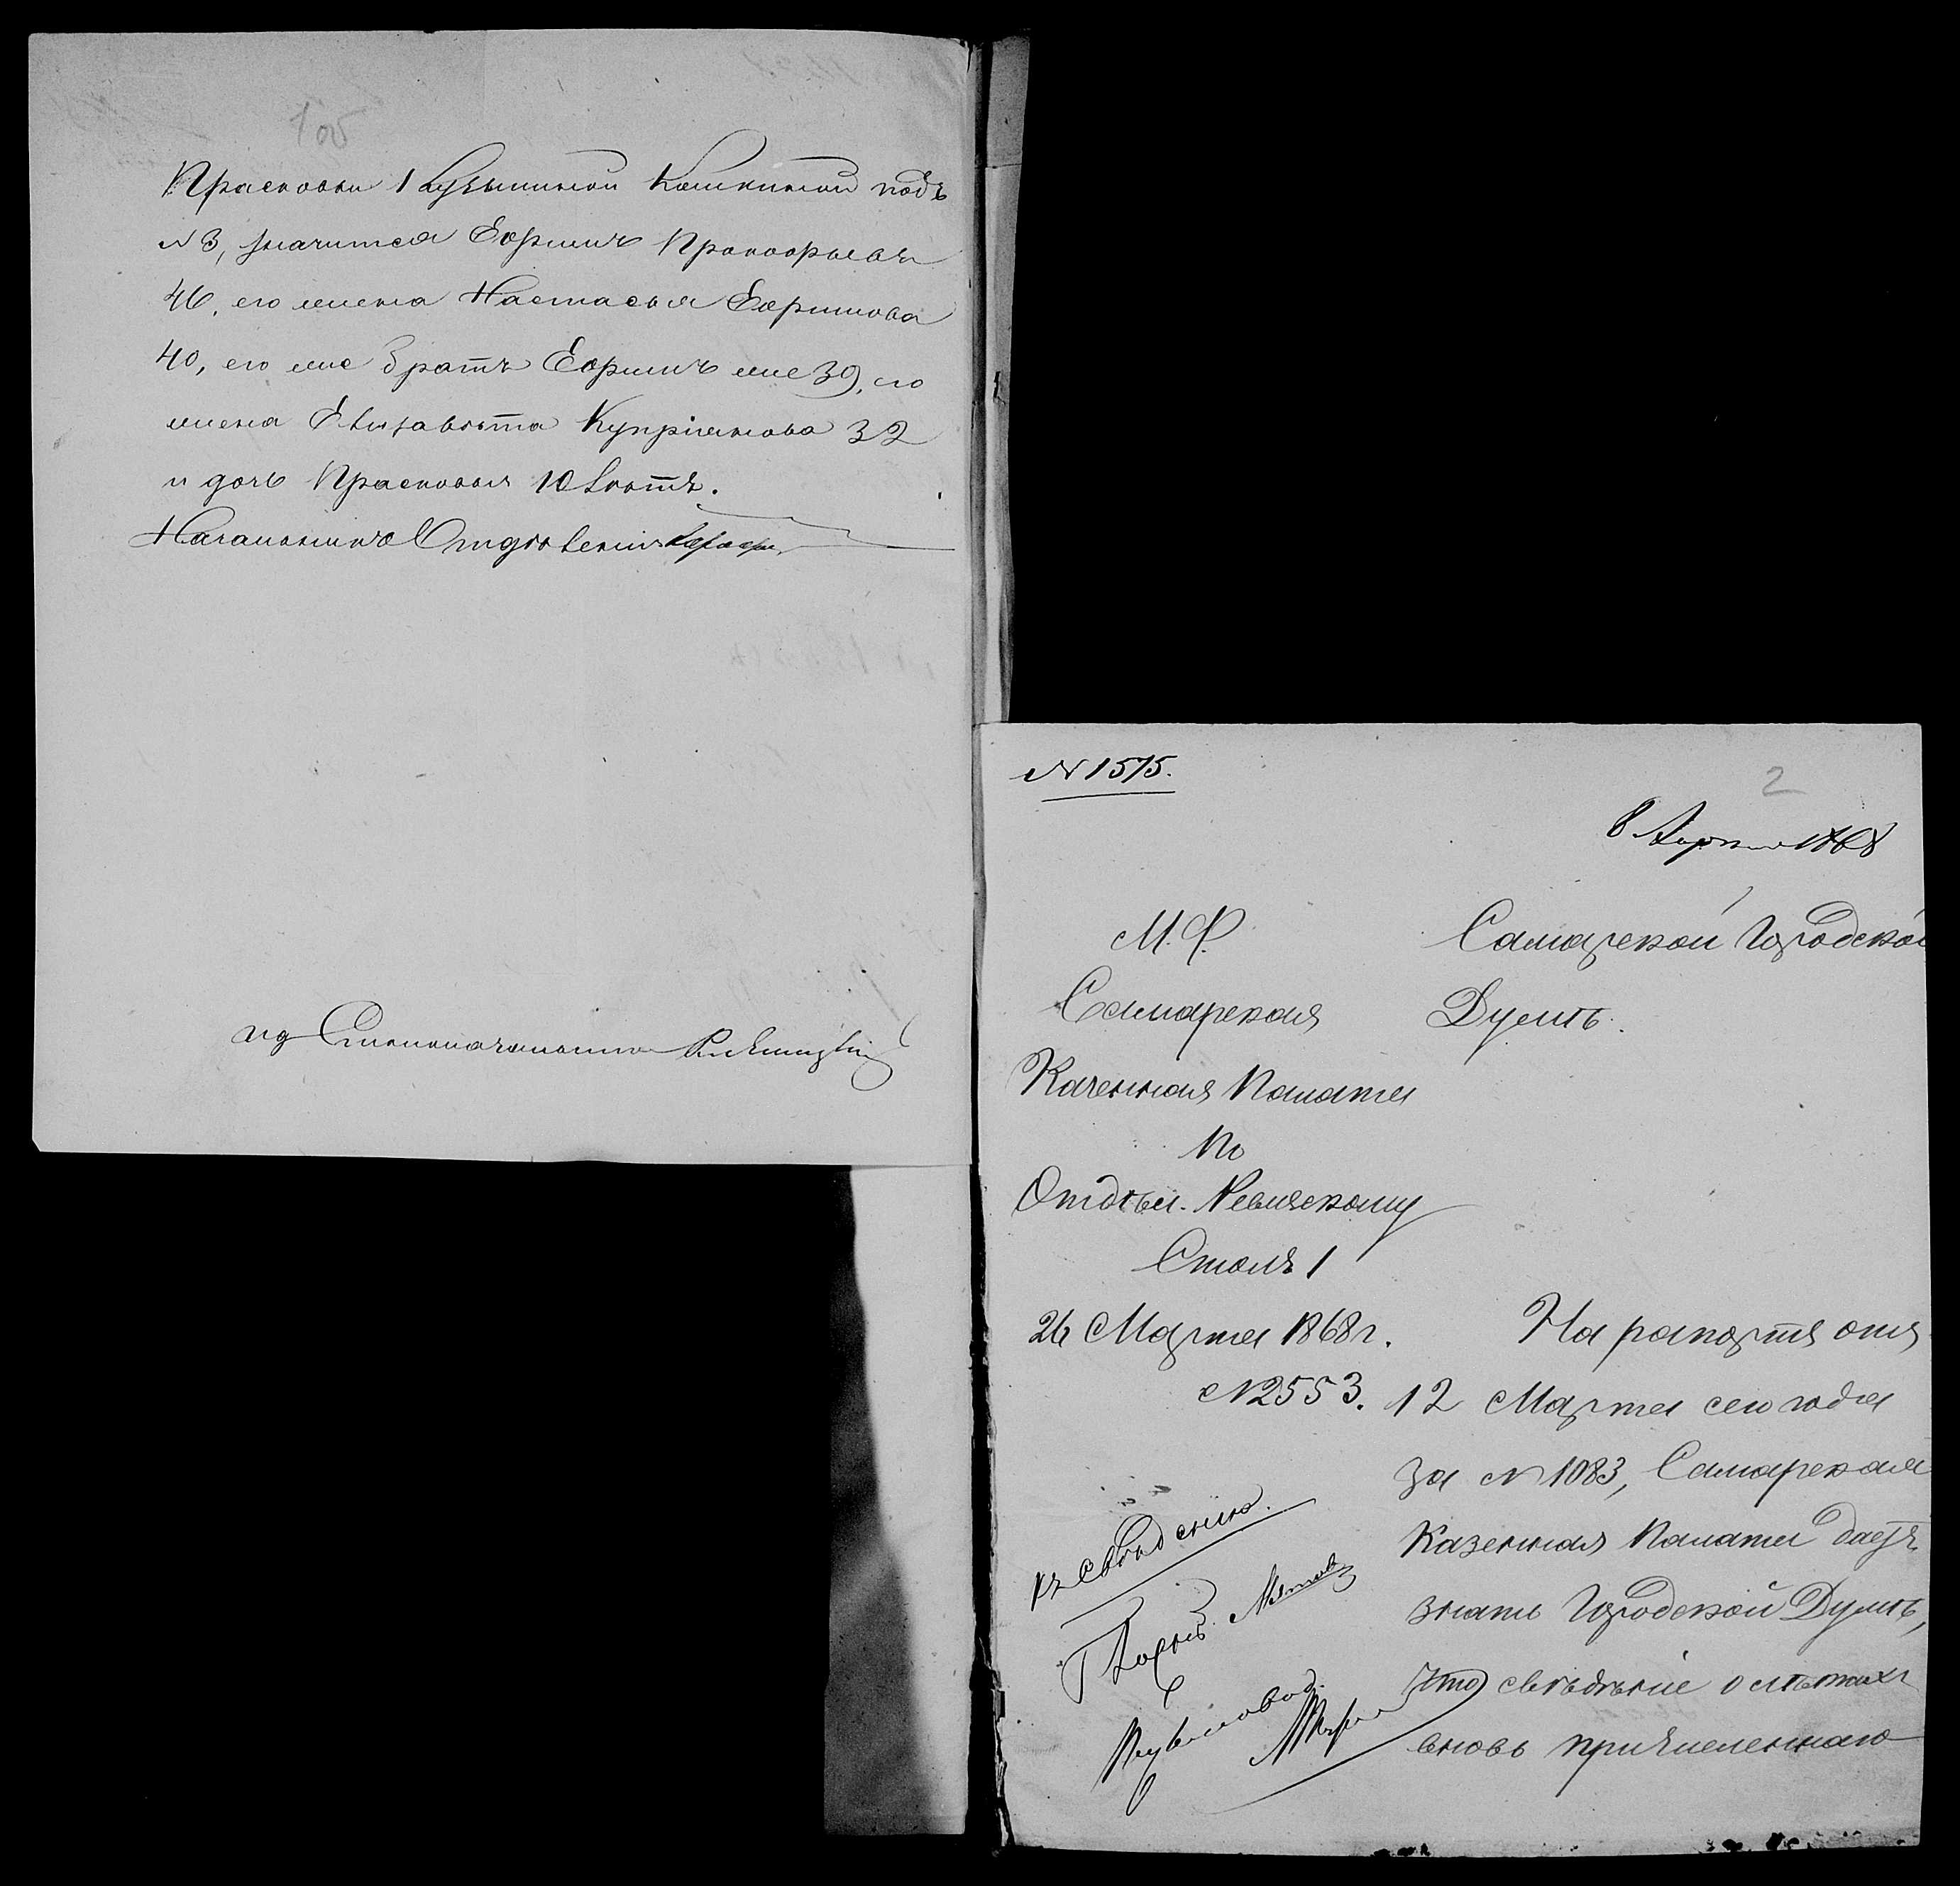 1 об
Прасковьи Кузьминой Кошкиной подъ
N 3, значится Ефимъ Прокофьевъ
46, его жена Настасья Ефимова
40, его же братъ Ефимъ же 39, его
жена Елизавѣта Купріянова 32
и дочь Прасковья 10 лѣтъ.
Начальникъ Отдѣленія
ид Столоначальника
N 1575.
2
8 Апреля 1868
М. Ф.
Самарская
Казенная Палата
По
Отдѣл. Ревизскому
Столъ 1
26 Марта 1868 г.
N 2553.
Самарской Городской
Думѣ.
На рапортъ отъ
12 Марта сего года
за N 1083, Самарская
Казенная Палата даетъ
знать Городской Думѣ,
что свѣдѣніе о лѣтахъ
вновь причисленнаго
къ свѣдѣнію.